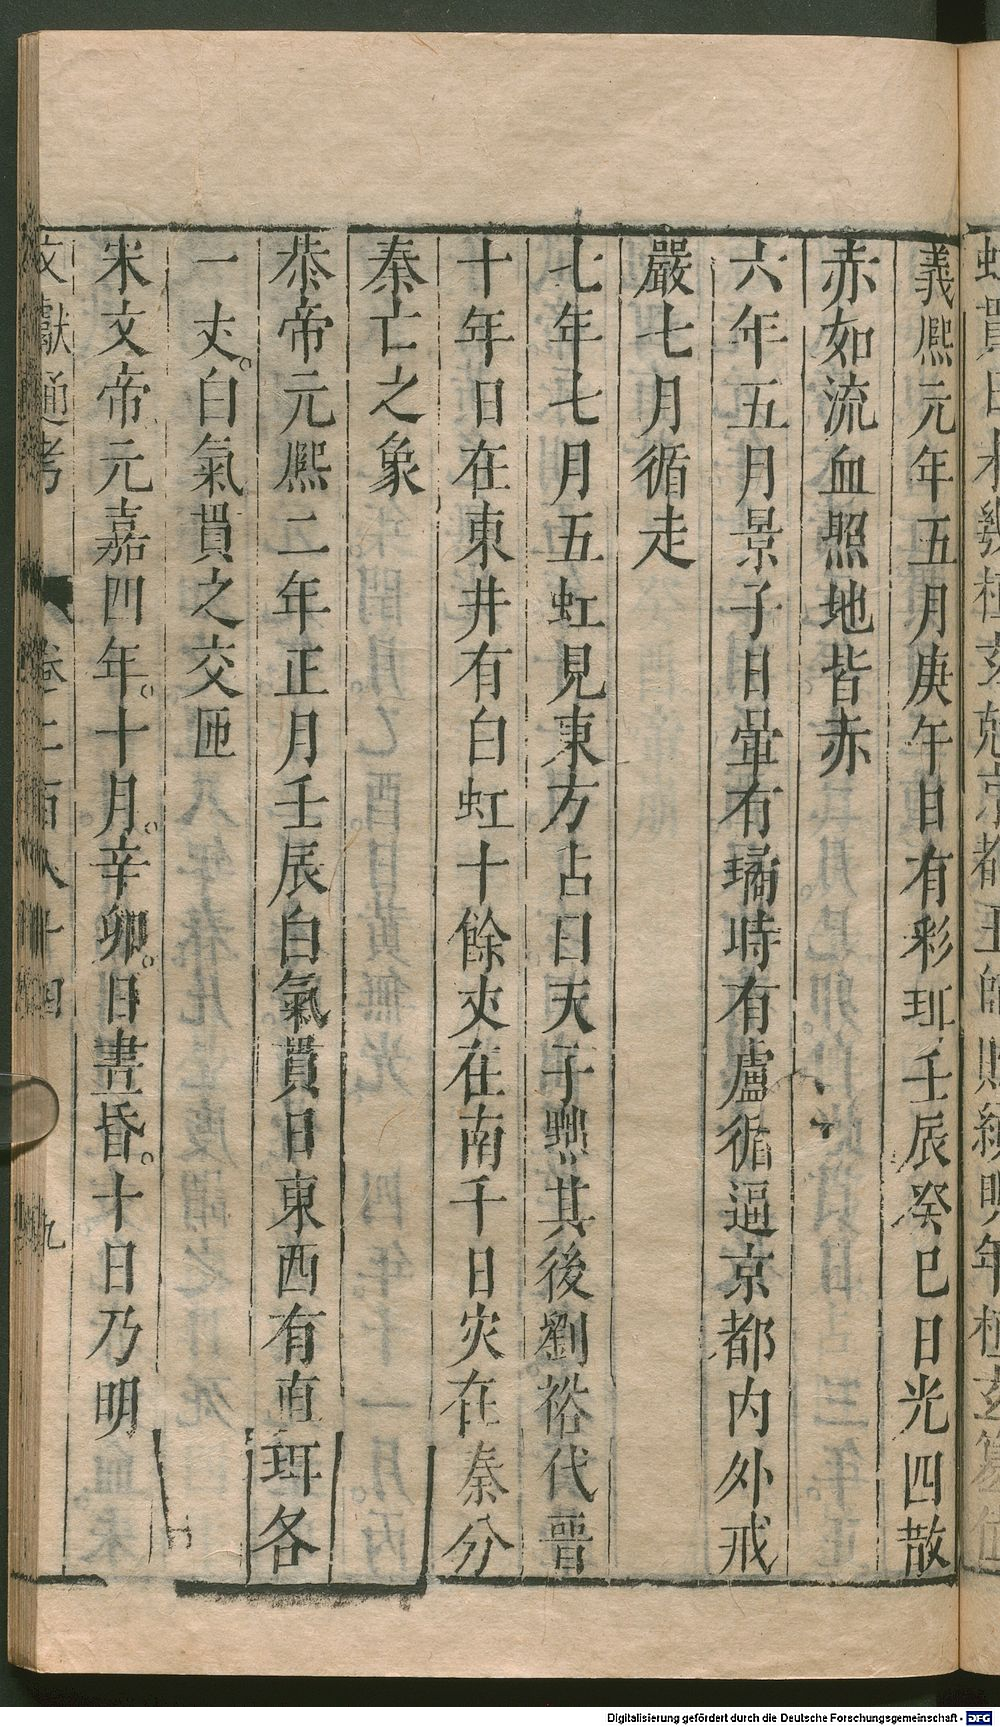 義熈元年五月庚午日有彩珥壬辰癸巳日光四散
赤如流血照地皆赤
六年五月景子日暈有璚時有盧循逼京都内外戒
嚴七月循走
七年七月五虹見東方占曰天子黜其後劉裕代晉
十年日在東井有白虹十餘丈在南千日灾在秦分
秦亡之象
恭帝元熈二年正月壬辰白氣貫日東西有直珥各
一丈。白氣貫之交匝
宋文帝元嘉四年。十月。辛卯。日晝昏。十日乃明
文獻通考 卷二百八十四 九
Digitalisierung gefördert durch die Deutsche Forschungsgemeinschaft - DFG